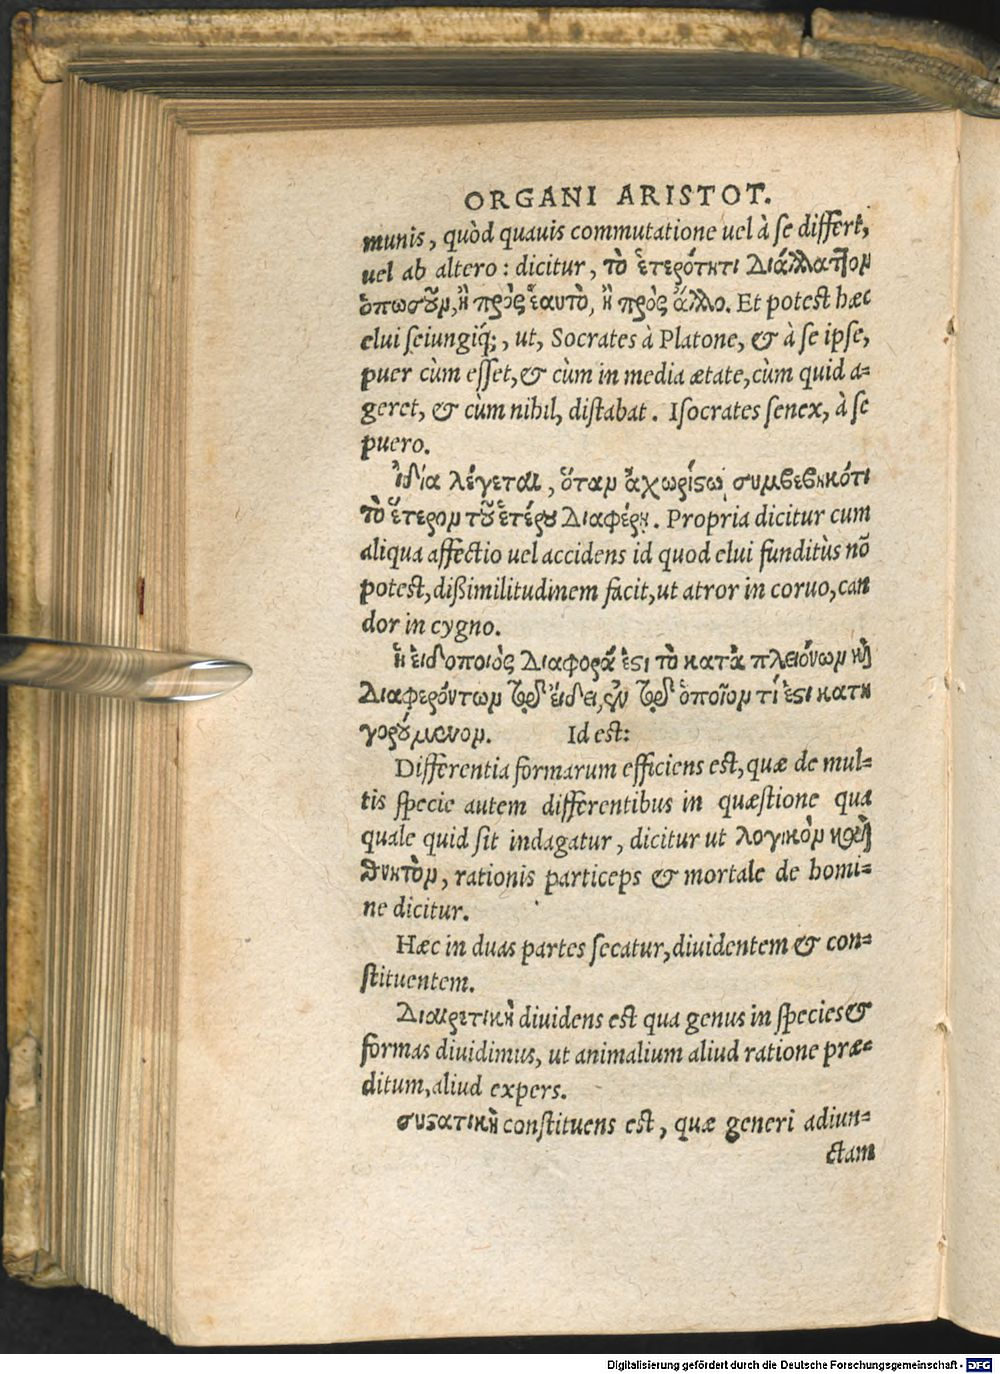 ORGANI ARISTOT.
munis, quòd quauis commutatione uel à se differt,
uel ab altero: dicitur, τὸ ἑτερότητι διάλλατ]ον
ὁπωσοῦν, ἢ πρὸς ἑαυτὸ, ἢ πρὸς ἄλλο. Et potest hæc
elui seiungíq;, ut, Socrates à Platone, & à se ipse,
puer cùm esset, & cùm in media ætate, cùm quid a=
geret, & cùm nihil, distabat. Isocrates senex, à se
puero.
ἰδία λέγεται, ὅταν ἀχωρίϛῳ συμβεβηκότι
τὸ ἕτερον τοῦ ἑτέρου διαφέρῃ. Propria dicitur cum
aliqua affectio uel accidens id quod elui funditùs nō
potest, dißimilitudinem facit, ut atror in coruo, can
dor in cygno.
ἡ εἰδοποιὸς διαφορά ἐϛι τὸ κατὰ πλειόνων καὶ
διαφερόντων τῷ εἴδει, ἐν τῷ ὁποῖον τί ἐϛι κατη
γορούμενον. Id est:
Differentia formarum efficiens est, quæ de mul=
tis specie autem differentibus in quæstione qua
quale quid sit indagatur, dicitur ut λογικὸν καὶ
θνητὸν, rationis particeps & mortale de homi=
ne dicitur.
Hæc in duas partes secatur, diuidentem & con=
stituentem.
Διαιρετικὴ diuidens est qua genus in species &
formas diuidimus, ut animalium aliud ratione præ=
ditum, aliud expers.
συϛατικὴ constituens est, quæ generi adiun=
ctam
Digitalisierung gefördert durch die Deutsche Forschungsgemeinschaft - DFG